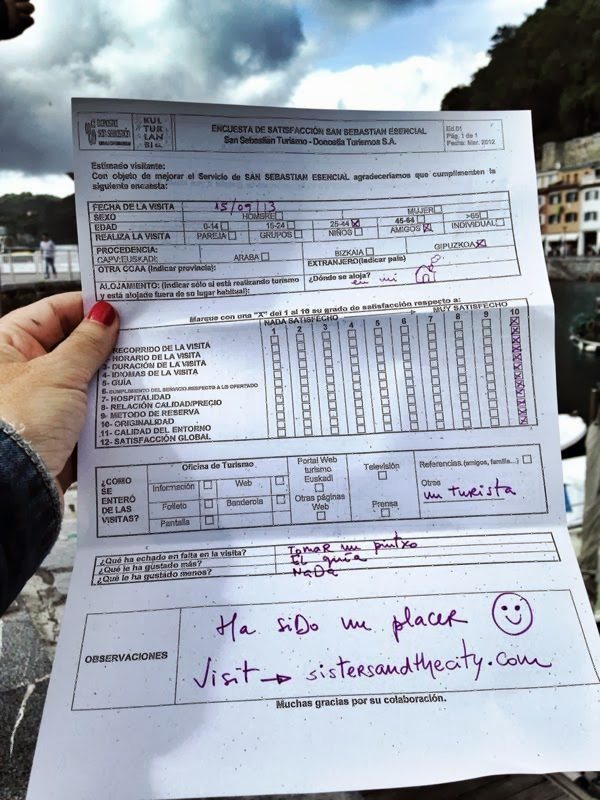 DONOSTIA
SAN SEBASTIÁN
KUL
TUR
LAN
BI
ENCUESTA DE SATISFACCIÓN SAN SEBASTIAN ESENCIAL
San Sebastián Turismo - Donostia Turismoa S.A.
Ed.01
Pág. 1 de 1
Fecha: Mar. 2012
Estimado visitante:
Con objeto de mejorar el Servicio de SAN SEBASTIAN ESENCIAL agradeceríamos que cumplimenten la
siguiente encuesta:
FECHA DE LA VISITA 15/09/13
SEXO HOMBRE MUJER
EDAD 0-14 15-24 25-44 45-64 >65
REALIZA LA VISITA PAREJA GRUPOS NIÑOS AMIGOS INDIVIDUAL
PROCEDENCIA:
CAPV/EUSKADI: ARABA BIZKAIA GIPUZKOA
OTRA CCAA (indicar provincia): EXTRANJERO(indicar país)
ALOJAMIENTO: (indicar sólo si está realizando turismo
y está alojado fuera de su lugar habitual): ¿Dónde se aloja? en mi
Marque con una "X" del 1 al 10 su grado de satisfacción respecto a:
NADA SATISFECHO MUY SATISFECHO
1 2 3 4 5 6 7 8 9 10
RECORRIDO DE LA VISITA
HORARIO DE LA VISITA
3- DURACIÓN DE LA VISITA
4- IDIOMAS DE LA VISITA
5- GUÍA
6- CUMPLIMIENTO DEL SERVICIO RESPECTO A LO OFERTADO
7- HOSPITALIDAD
8- RELACIÓN CALIDAD/PRECIO
9- METODO DE RESERVA
10- ORIGINALIDAD
11- CALIDAD DEL ENTORNO
12- SATISFACCIÓN GLOBAL
¿CÓMO
SE
ENTERÓ
DE LAS
VISITAS?
Oficina de Turismo
Información Web
Folleto Banderola
Pantalla
Portal Web
turismo
Euskadi
Otras páginas
Web
Televisión
Prensa
Referencias (amigos, familia...)
Otros
un turista
¿Qué ha echado en falta en la visita? Tomar un pintxo
¿Qué le ha gustado más? El guía
¿Qué le ha gustado menos? NaDa
OBSERVACIONES
Ha siDo un placer
Visit → sistersandthecity.com
Muchas gracias por su colaboración.